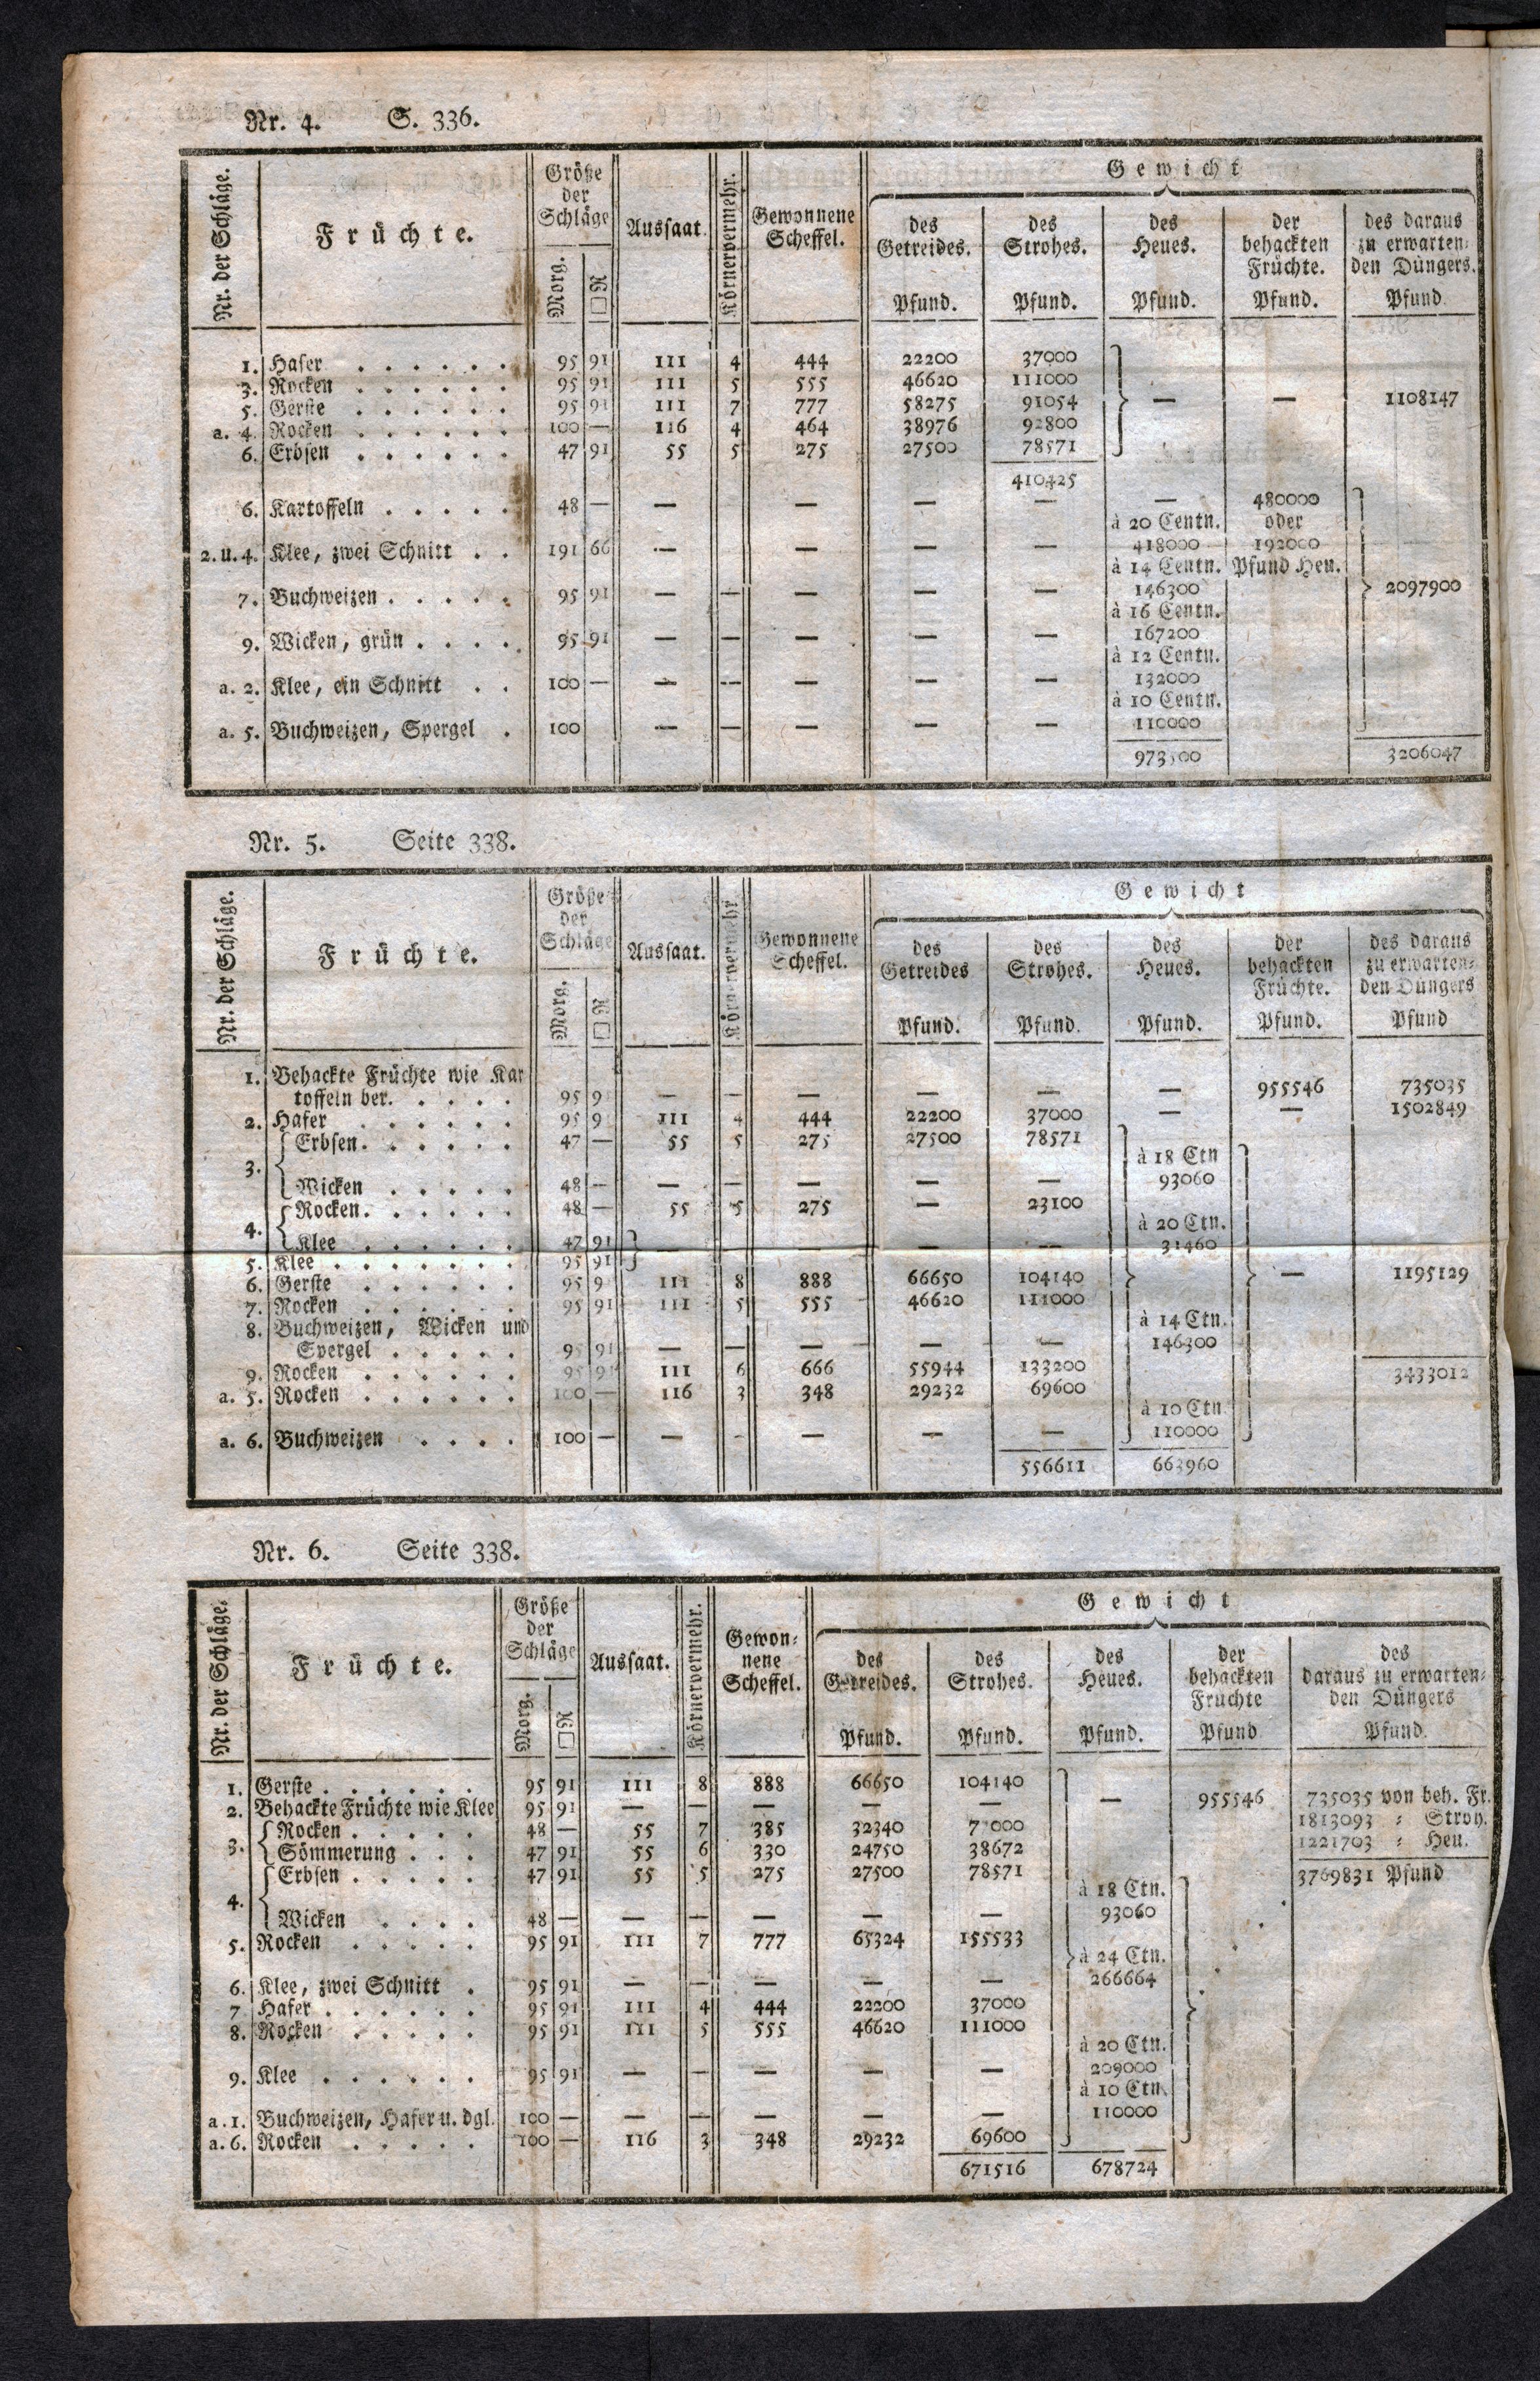 Nr. 4. S. 336.
Nr. der Schläge. Früchte. Größe der Schläge Morg. □R Aussaat. Körnervermehr. Gewonnene Scheffel. Gewicht
des Getreides. Pfund. des Strohes. Pfund. des Heues. Pfund. der behackten Früchte. Pfund. des daraus zu erwarten- den Düngers. Pfund
1. Hafer . . . . . . 95 91 111 4 444 22200 37000
3. Rocken . . . . . . 95 91 111 5 555 46620 111000
5. Gerste . . . . . . 95 91 111 7 777 58275 91054 — — 1108147
a. 4. Rocken . . . . . . 100 — 116 4 464 38976 92800
6. Erbsen . . . . . . 47 91 55 5 275 27500 78571
410425
6. Kartoffeln . . . . . 48 — — — — — — 480000
à 20 Centn. oder
2. u. 4. Klee, zwei Schnitt . . 191 66 — — — — 418000 192000
à 14 Centn. Pfund Heu.
7. Buchweizen . . . . . 95 91 — — — — — 146300 2097900
à 16 Centn.
9. Wicken, grün . . . . 95 91 — — — — — 167200
à 12 Centn.
a. 2. Klee, ein Schnitt . . 100 — — — — — — 132000
à 10 Centn.
a. 5. Buchweizen, Spergel . 100 — — — — — 110000
973500 3206047
Nr. 5. Seite 338.
Nr. der Schläge. Früchte. Größe der Schläge Morg. □R Aussaat. Körnervermehr. Gewonnene Scheffel. Gewicht
des Getreides Pfund. des Strohes. Pfund. des Heues. Pfund. der behackten Früchte. Pfund. des daraus zu erwarten- den Düngers Pfund
1. Behackte Früchte wie Kar
toffeln ber. . . . . 95 9 — — — — — — 955546 735035
2. Hafer . . . . . . 95 9 111 4 444 22200 37000 — — 1502849
3. Erbsen. . . . . . 47 — 55 5 275 27500 78571
à 18 Ctn
Wicken . . . . . 48 — — — — — — 93060
4. Rocken. . . . . . 48 — 55 5 275 — 23100
à 20 Ctn.
Klee . . . . . . 47 91 — — — — 31460
5. Klee . . . . . . . 95 91
6. Gerste . . . . . . 95 9 111 8 888 66650 104140 — 1195129
7. Rocken . . . . . . 95 91 111 5 555 46620 111000
8. Buchweizen, Wicken und à 14 Ctn.
Spergel . . . . . 95 91 — — — — — 146300
9. Rocken . . . . . . 95 91 111 6 666 55944 133200 3433012
a. 5. Rocken . . . . . . 100 — 116 3 348 29232 69600
à 10 Ctn
a. 6. Buchweizen . . . . 100 — — - — — — 110000
556611 663960
Nr. 6. Seite 338.
Nr. der Schläge. Früchte. Größe der Schläge Morg. R□ Aussaat. Körnervermehr. Gewon- nene Scheffel. Gewicht
des Getreides. Pfund. des Strohes. Pfund. des Heues. Pfund. der behackten Fruchte Pfund des daraus zu erwarten- den Düngers Pfund.
1. Gerste . . . . . . 95 91 111 8 888 66650 104140
2. Behackte Früchte wie Klee 95 91 — — — — — — 955546 735035 von beh. Fr.
3. Rocken . . . . . 48 — 55 7 385 32340 77000 1813093 = Stroh.
Sömmerung . . . 47 91 55 6 330 24750 38672 1221703 = Heu.
Erbsen . . . . . 47 91 55 5 275 27500 78571 3769831 Pfund
4. à 18 Ctn.
Wicken . . . . 48 — — — — — — 93060
5. Rocken . . . . . 95 91 111 7 777 65324 155533
à 24 Ctn.
6. Klee, zwei Schnitt . 95 91 — — — — — 266664
7 Hafer . . . . . . 95 91 111 4 444 22200 37000
8. Rocken . . . . . 95 91 111 5 555 46620 111000
à 20 Ctn.
9. Klee . . . . . . 95 91 — — — — — 209000
à 10 Ctn.
a. 1. Buchweizen, Hafer u. dgl. 100 — — — — — — 110000
a. 6. Rocken . . . . . 100 — 116 3 348 29232 69600
671516 678724